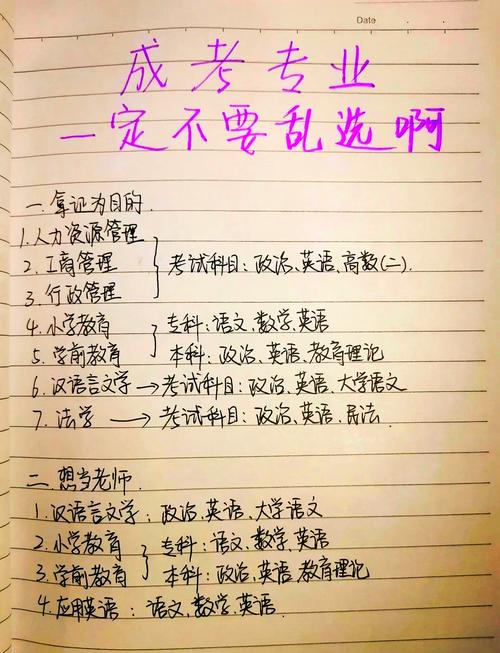 Date
成考专业
一定不要乱选啊
一.拿证为目的.
1.人力资源管理
2.工商管理 考试科目:政治、英语、高数(二).
3.行政管理
4.小学教育 专科:语文、数学、英语
5.学前教育 本科:政治、英语、教育理论
6.汉语言文学→考试科目:政治、英语、大学语文
7.法学→考试科目:政治、英语、民法.
二.想当老师.
1.汉语言文学:政治、英语、大学语文
2.小学教育 专科:语文、数学、英语
3.学前教育 本科:政治、英语、教育理论
4.应用英语:语文、数学、英语.